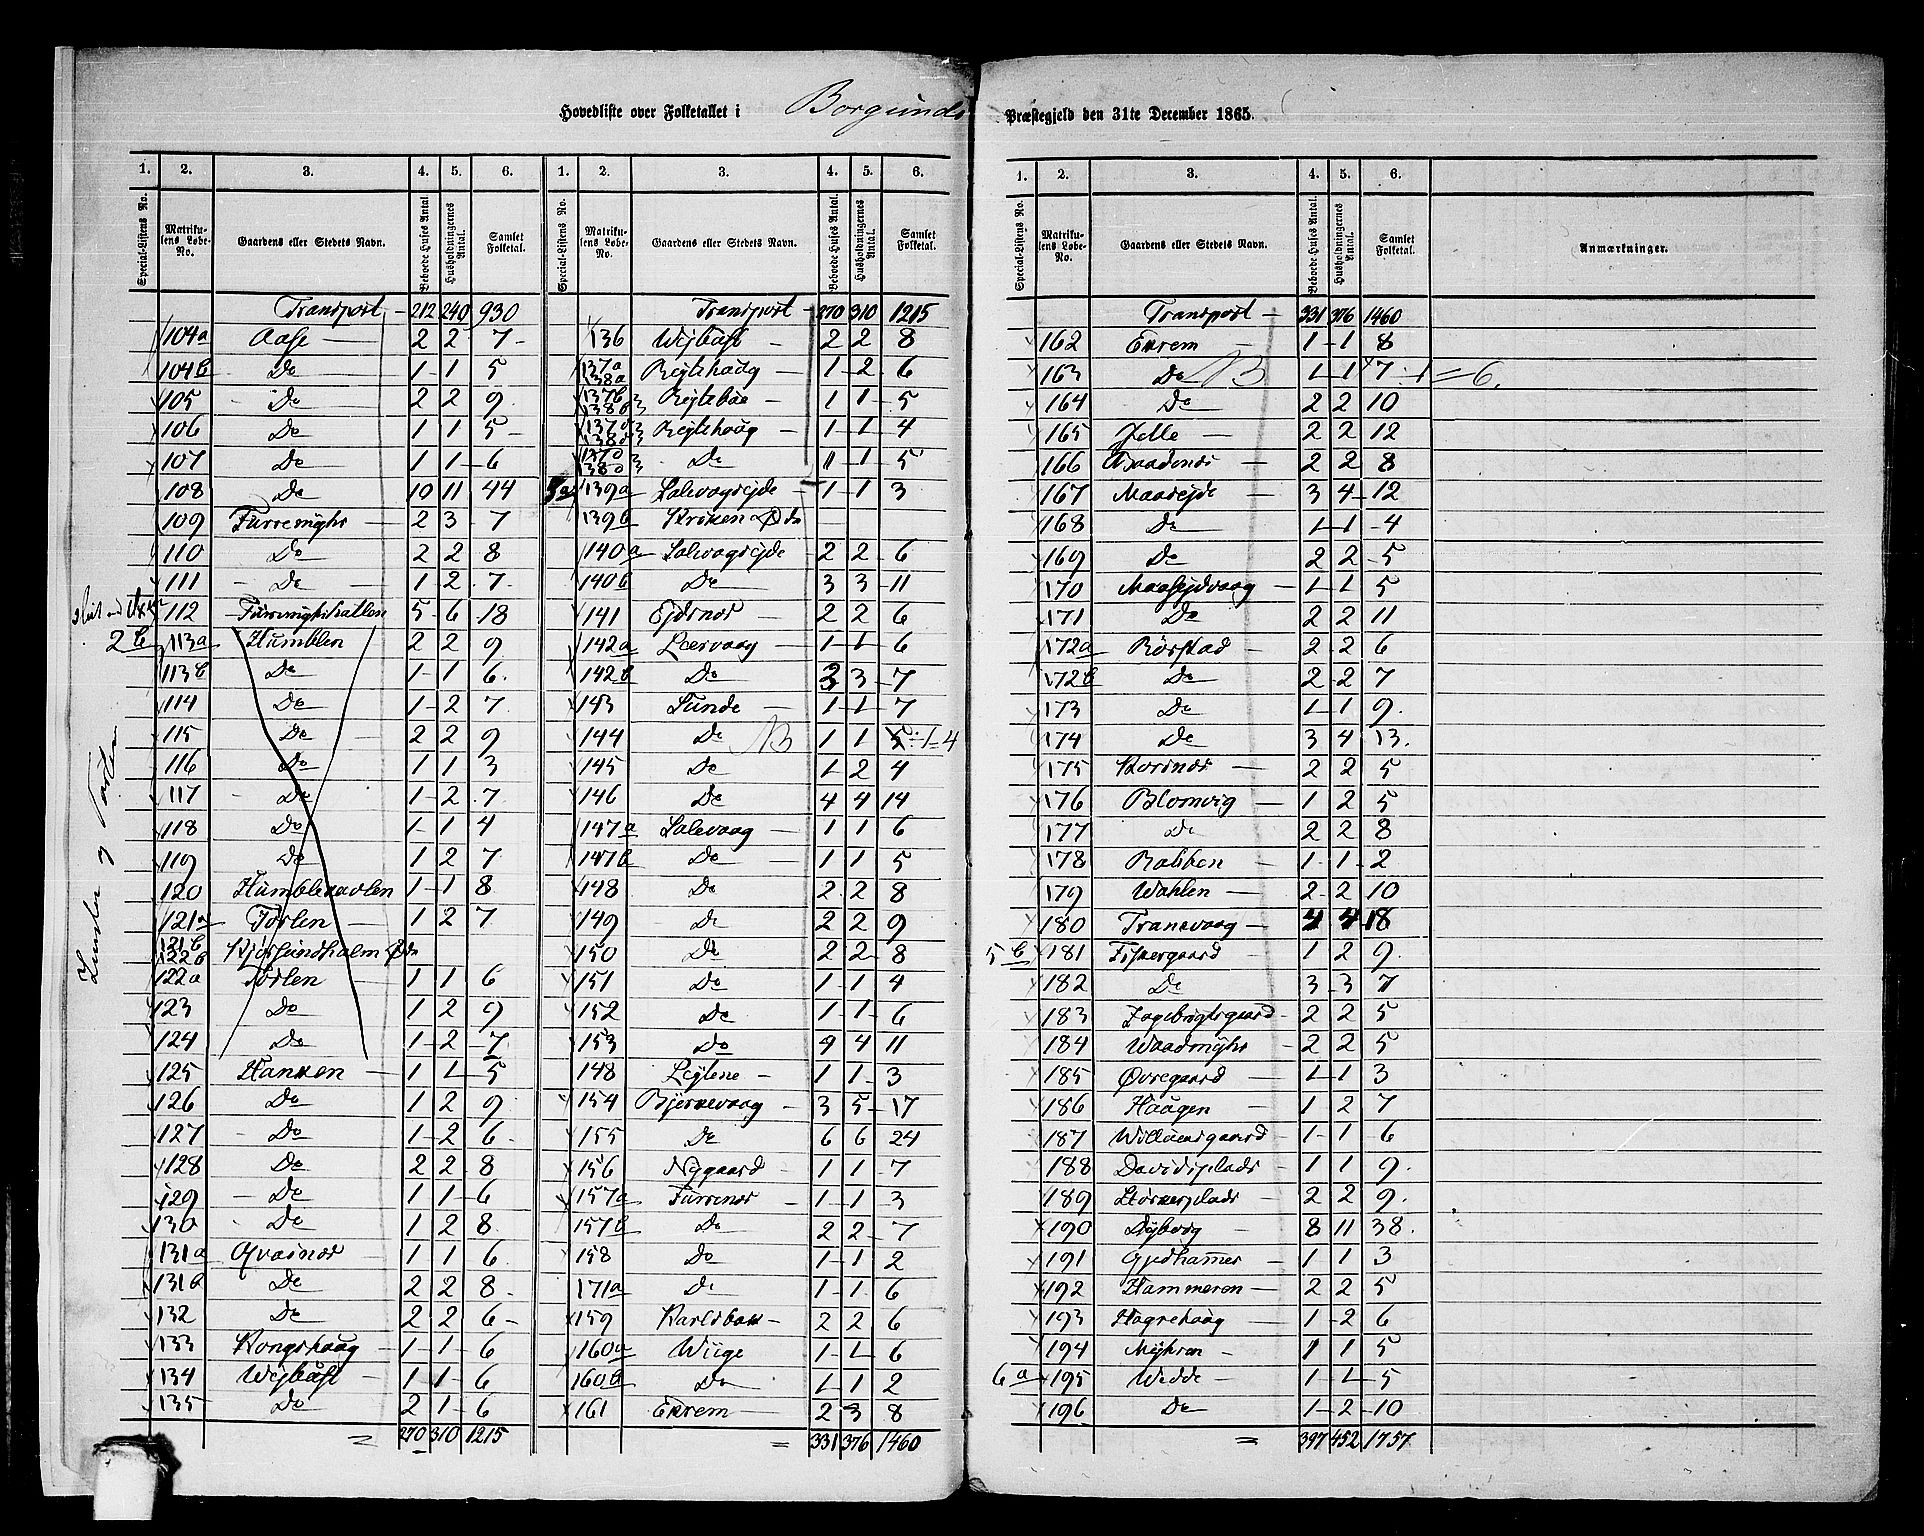 Hovedliste over Folketallet i Borgunds Præstegjeld den 31te December 1865.
1. 2. 3. 4. 5. 6. 1. 2. 3. 4. 5. 6.
Special-Listens No. Matrikulens Løbe-No. Gaardens eller Stedets Navn. Beboede Huses Antal. Husholdningernes Antal. Samlet Folketal. Special-Listens No. Matrikulens Løbe-No. Gaardens eller Stedets Navn. Beboede Huses Antal. Husholdningernes Antal. Samlet Folketal.
Transport 212 240 930
104a Aase 2 2 7
104b Do 1 1 5
105 Do 2 2 9
106 Do 1 1 5
107 Do 1 1 6
108 Do 10 11 44
109 Furremyhr 2 3 7
110 Do 2 2 8
111 Do 1 2 7
112 5 6 18
2b 113a Humblen 2 2 9
113b Do 1 1 6
114 Do 1 2 7
115 Do 2 2 9
116 Do 1 1 3
117 Do 1 2 7
118 Do 1 1 4
119 Do 1 2 7
120 1 1 8
121a Torlen 1 2 7
121b 122b Kjørsundholm Øde
122a Torlen 1 1 6
123 Do 1 2 9
124 Do 1 2 7
125 Hanken 1 1 5
126 Do 1 2 9
127 Do 1 2 6
128 Do 2 2 8
129 Do 1 1 6
130 Do 1 2 8
131a Qvasnes 1 1 6
131b Do 2 2 8
132 Do 2 2 6
133 Kongshaug 1 1 6
134 Wejbust 1 1 6
135 Do 2 1 6
= 270 310 1215
Transport 270 310 1215
136 Wejbust 2 2 8
137a 138a Rejtehaug 1 2 6
137b 138b Rejtebøe 1 1 5
Rejtehaug 1 1 4
Do 1 1 5
5a 139a Solevogsejde 1 1 3
139b Kriken Øde
140a Solevogsejde 2 2 6
140b Do 3 3 11
141 Ejdsnes 2 2 6
142a Leervaag 1 1 6
142b Do 3 3 7
143 Sunde 1 1 7
144 Do NB 1 1 5÷1=4
145 Do 1 2 4
146 Do 4 4 14
147a Solevaag 1 1 6
147b Do 1 1 5
148 Do 2 2 8
149 Do 2 2 9
150 Do 2 2 8
151 Do 1 1 4
152 Do 1 1 6
153 Do 4 4 11
148 Lejtene 1 1 3
154 Bjørkevaag 3 5 17
155 Do 6 6 24
156 Nygaard 1 1 7
157a Furenes 1 1 3
157b Do 2 2 7
158 Do 1 1 2
171a Do 1 1 6
159 Karlsbak 2 2 6
160a Wiige 1 1 6
160b Do 1 1 2
161 Ekrem 2 3 8
= 331 376 1460
1. 2. 3. 4. 5. 6.
Special-Listens No. Matrikulens Løbe-No. Gaardens eller Stedets Navn. Beboede Huses Antal. Husholdningernes Antal. Samlet Folketal. Anmærkninger.
Transport 331 376 1460
162 Ekrem 1 1 8
163 Do NB 1 1 7 ÷1=6.
164 Do 2 2 10
165 Jelle 2 2 12
166 Baadsnes 2 2 8
167 Maasejde 3 4 12
168 Do 1 1 4
169 Do 2 2 5
170 Maasejdvaag 1 1 5
171 Do 2 2 11
172a Rørstad 2 2 6
172b Do 2 2 7
173 Do 1 1 9
174 Do 3 4 13
175 Korsnes 2 2 5
176 Blomvig 1 2 5
177 Do 2 2 8
178 Rabben 1 1 2
179 Wahlen 2 2 10
180 Tranevaag 4 4 18
5b 181 Fiskergaard 1 2 9
182 Do 3 3 7
183 2 2 5
184 Waadmyhr 2 2 5
185 Øvregaard 1 1 3
186 Haugen 1 2 7
187 Willumsgaard 1 1 6
188 Davidsplads 1 1 9
189 Størkerplads 2 2 9
190 Dybvig 8 11 38
191 Gjedhamer 1 1 3
192 Hammeren 2 2 5
193 Hagrehaug 1 2 6
194 Myhren 1 1 5
6a 195 Wedde 1 1 5
196 Do 1 2 10
= 397 452 1757